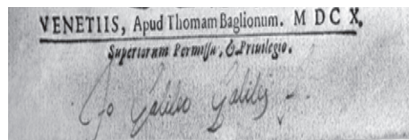 VENETIIS, Apud Thomam Baglionum. M D C X.
Superiorum Permissu, & Privilegio.
Io Galileo Galilei f.